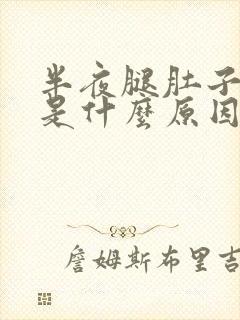 半夜腿肚子
是什麼原因
詹姆斯布里吉